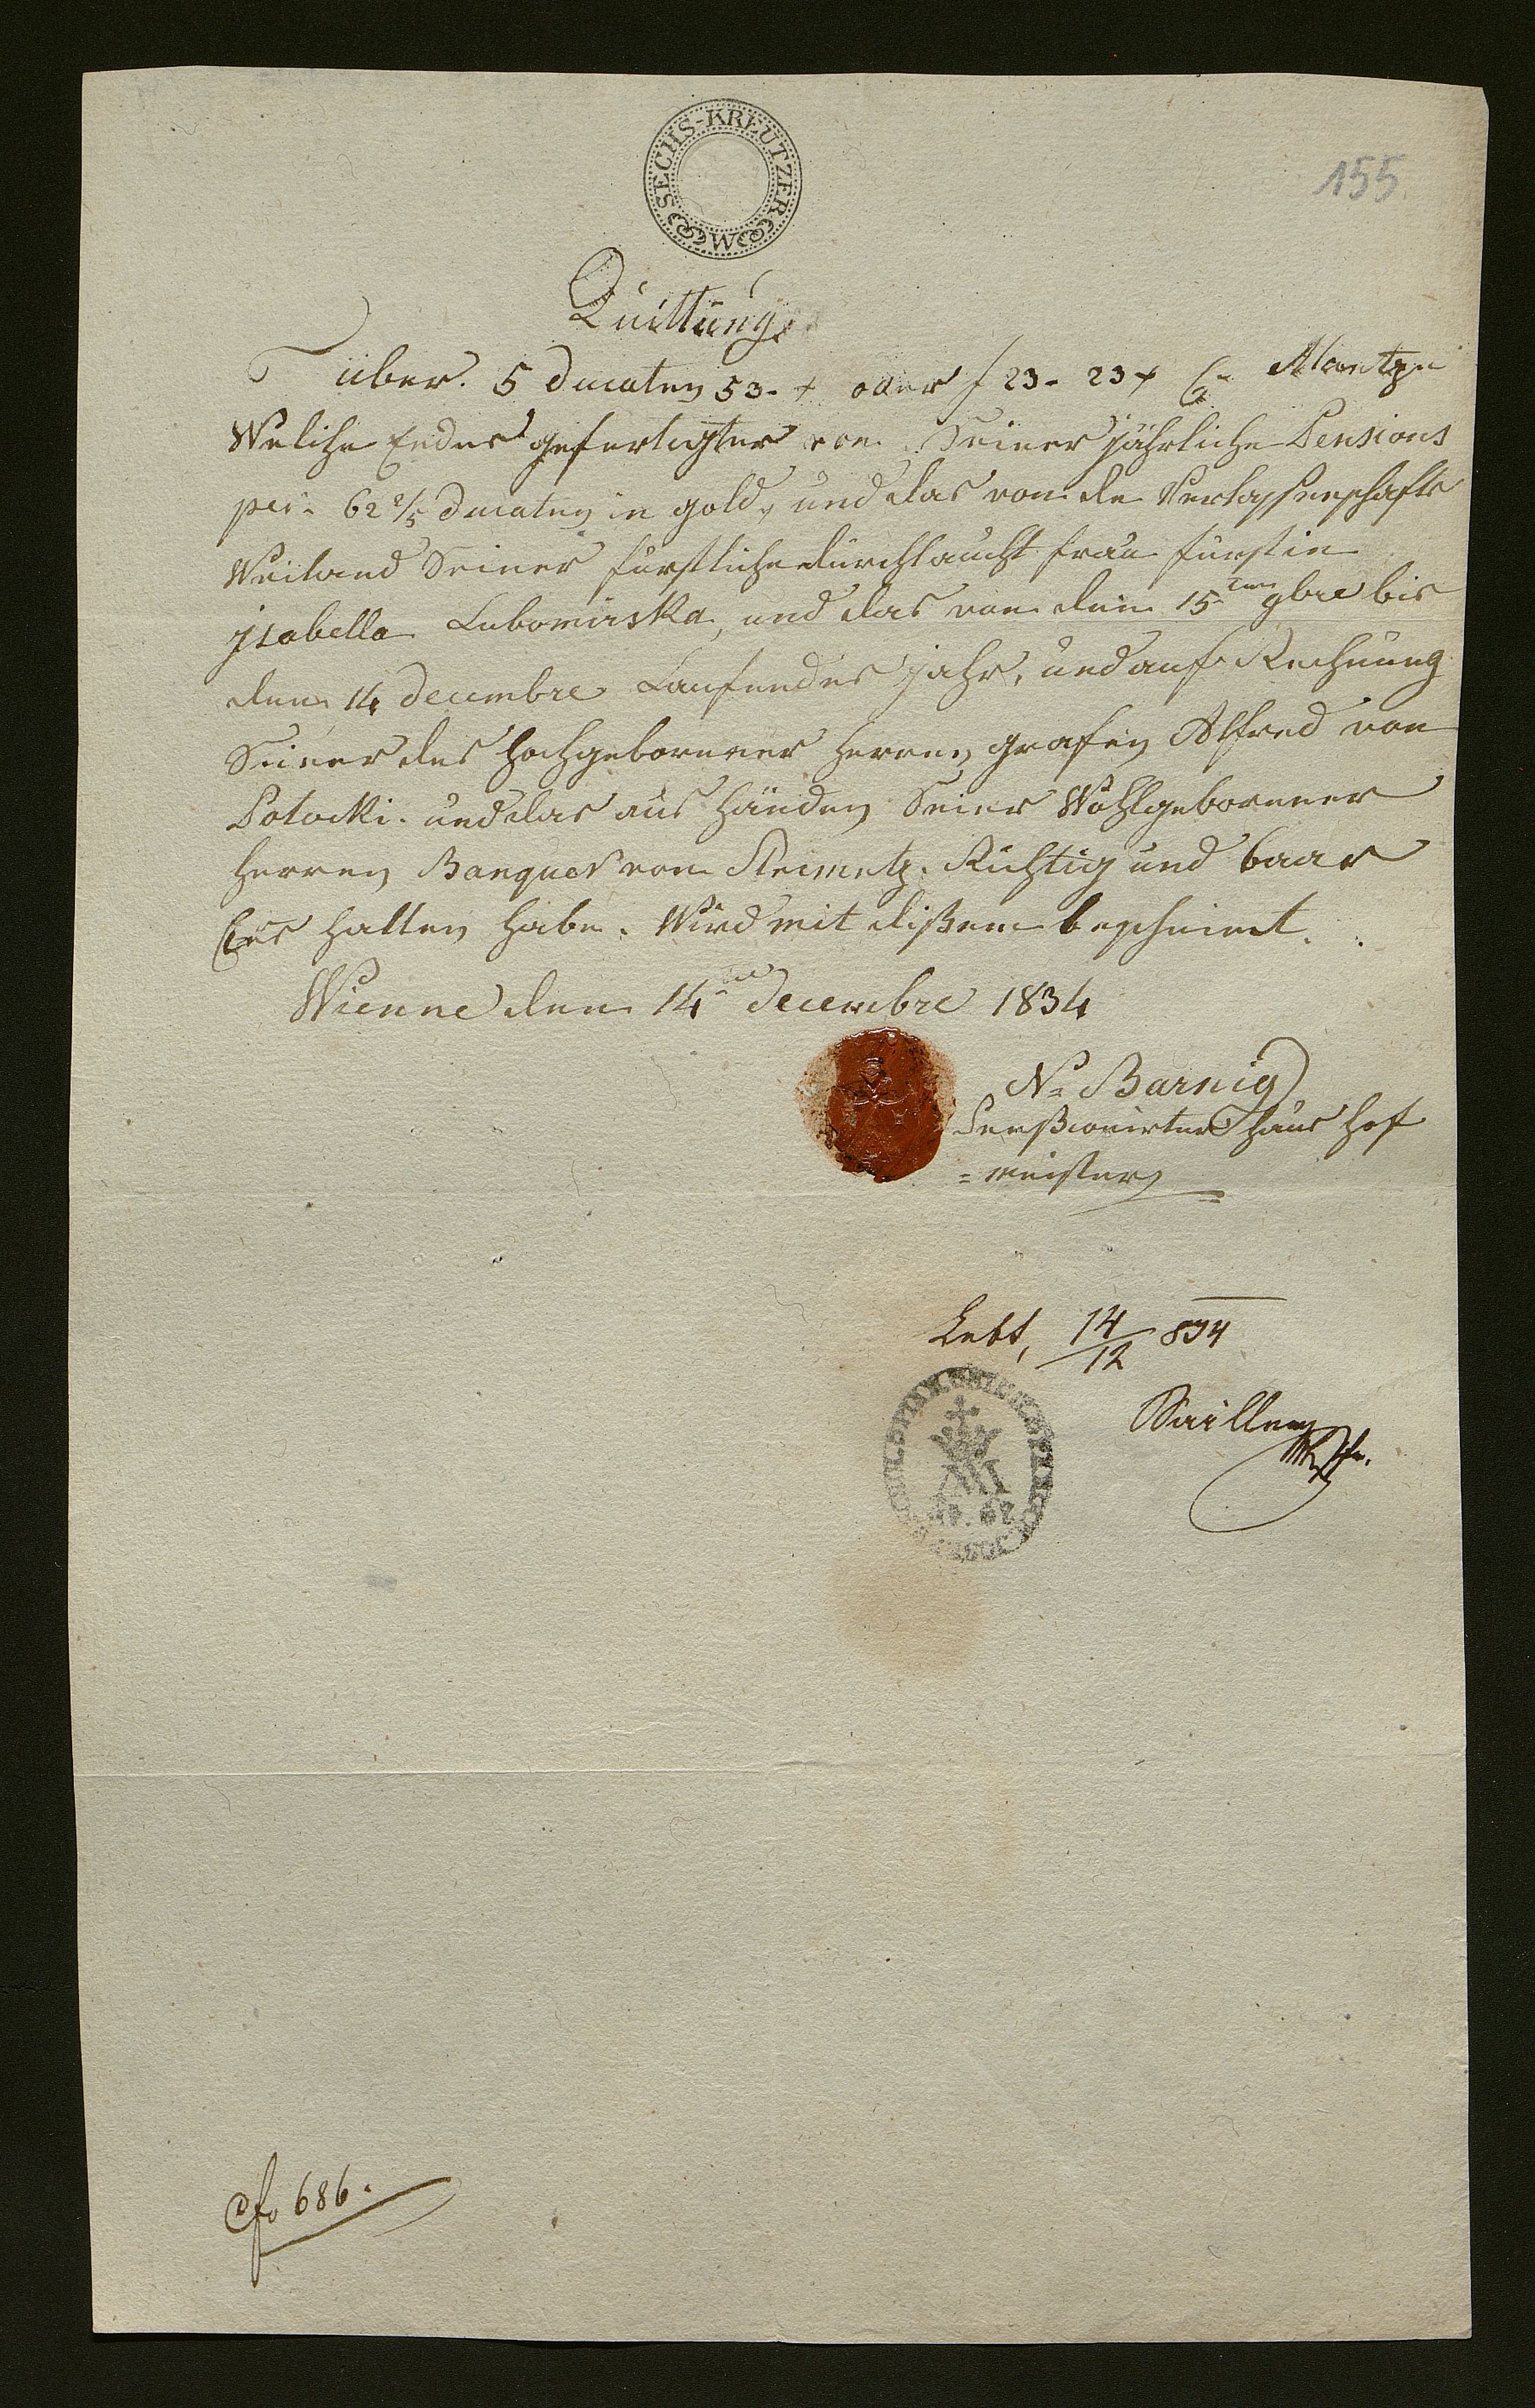 SECHS-KREUTZER
W
155
Quittung
über. 5 ducaten 53 x oder f 23 - 23 x C Montze
Welche Endes gefertigter von Seiner jährliche Pensions
per 62 2/5 ducaten in gold, und das von de Verlassenschafts
Weiland Seiner fürstliche durchlaucht frau fürstin
Isabella Lubomirska, und das von dem 15ten 9bre bis
dem 14 decembre Laufendes jahr, und auf Rechnung
Seiner des hochgeborener herren grafen Alfred von
Potocki. und das aus händen Seiner Wohlgeborener
herren Banquer von Steimetz. Richtig und baar
Er halten habe. Wird mit dißem bescheint.
Vienne den 14 decembre 1834
N. Barnig
Penßionirter Haus Hof
= meister
Lebt, 14/12 834
M
Cfo 686.